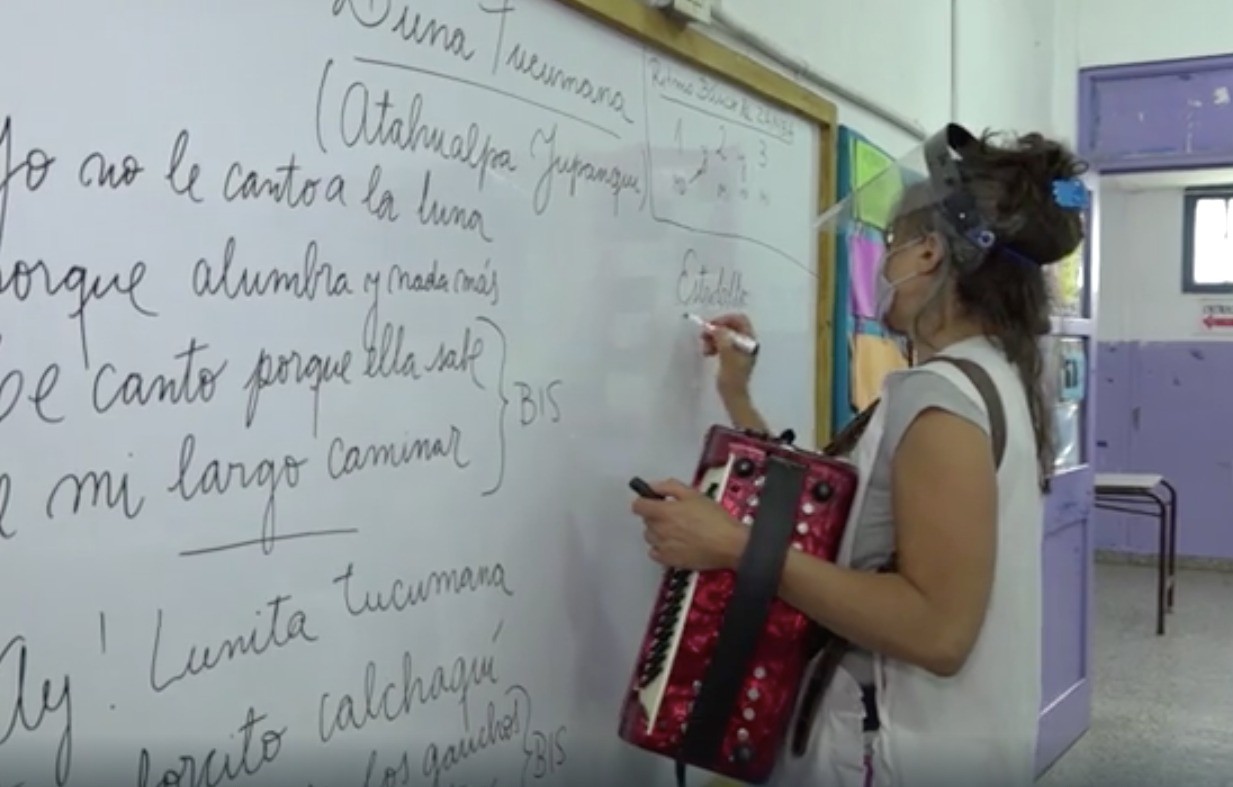 Luna Tucumana
(Atahualpa Yupanqui)
Yo no le canto a la luna
porque alumbra y nada más
Le canto porque ella sabe
e mi largo caminar
BIS
Ay! Lunita tucumana
borcito calchaquí
los gauchos
BIS
Ritmo Base de ZAMBA
1 y 2 y 3
Estribillo